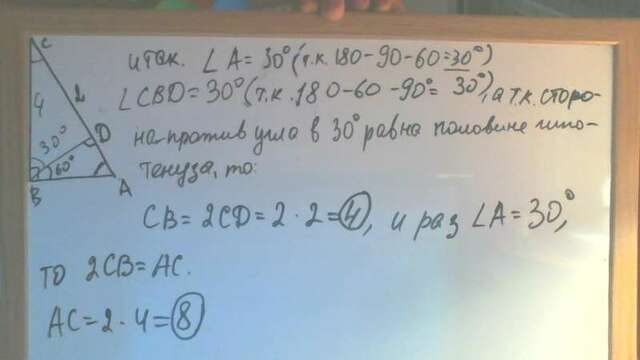 C
4
2
30°
D
60°
B
A
итак. ∠A = 30° (т.к. 180-90-60=30°)
∠CBD = 30° (т.к. 180-60-90°= 30°), а т.к. сторо-
на против угла в 30° равна половине гипо-
тенуза, то:
CB = 2CD = 2·2 = 4, и раз ∠A = 30°,
то 2CB = AC.
AC = 2·4 = 8